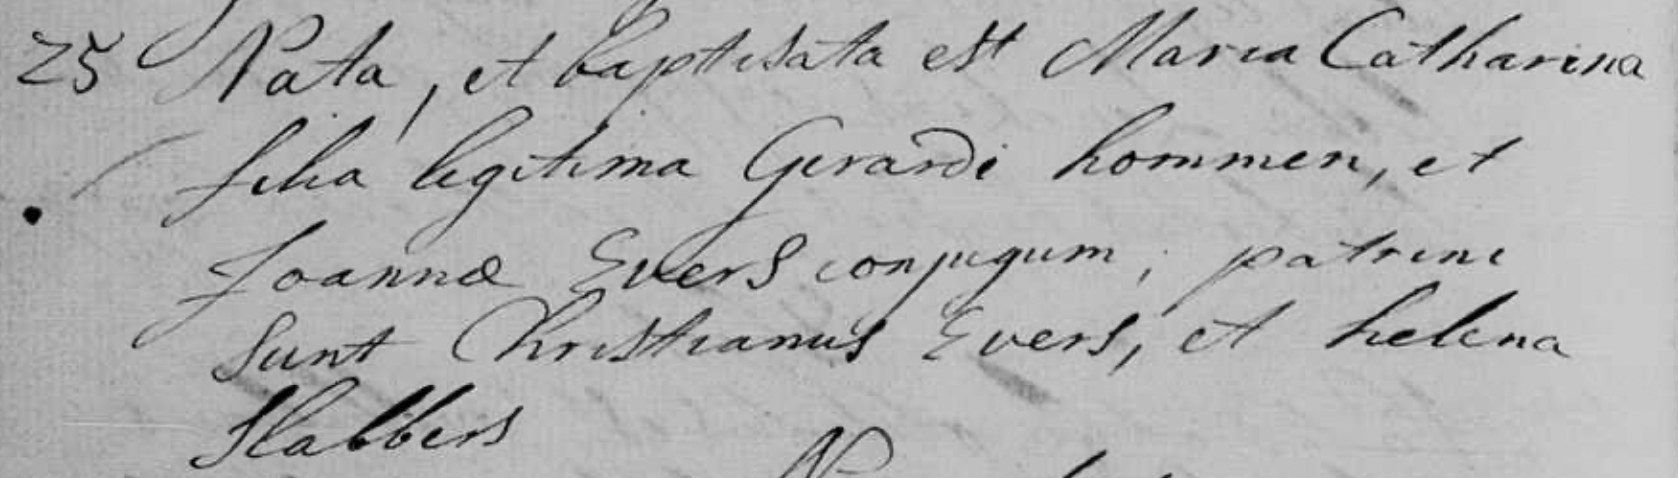 25 Nata, et baptisata est Maria Catharina
filia legitima Gerardi hommen, et
Joannæ Evers conjugum, patrini
sunt Christianus Evers, et helena
Slabbers